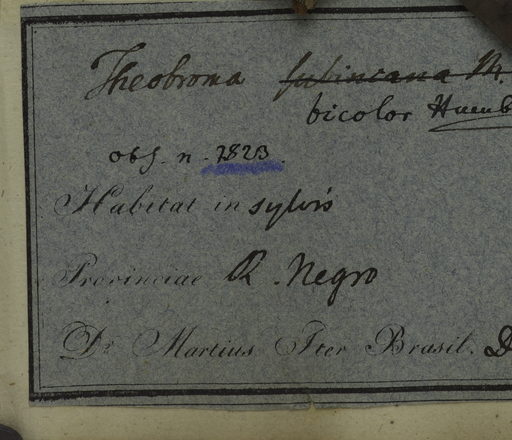 Theobroma subincana M.
bicolor Humb
obs. n. 2823.
Habitat in sylvis
Provinciae R. Negro
Dr. Martius Iter Brasil. D